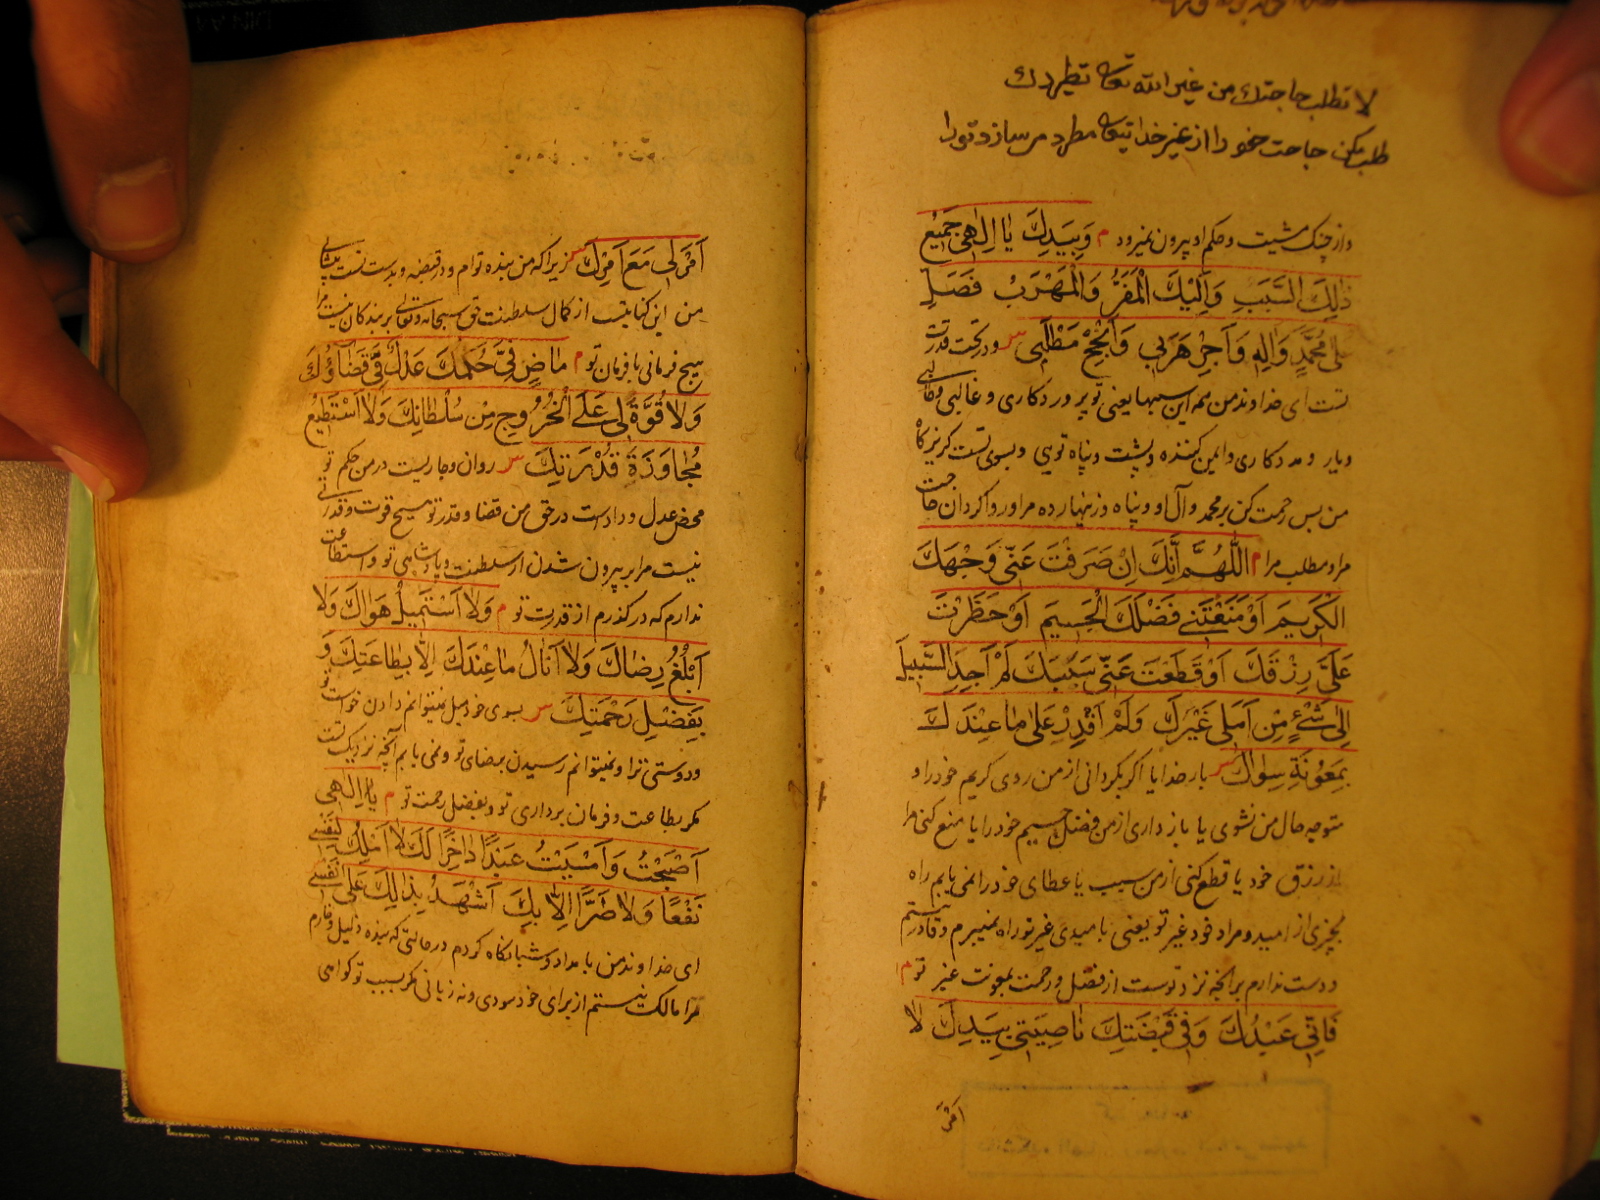 لا تطلب حاجتك من غير الله تعالی
طلب مکن حاجت خود را از غیر خدا مطرود میسازد تو را
و از چنک مشیت و حکم او بیرون نمیرود م وَبِيَدِكَ يٰا اِلٰهِي جَمِيْعُ
ذٰلِكَ السَّبَبِ وَاِلَيْكَ الْمَفَرُّ وَالْمَهْرَبُ فَصَلِّ
عَلٰى مُحَمَّدٍ وَاٰلِهِ وَاَجِرْ هَرَبِي وَاَنْجِحْ مَطْلَبِي س و در تحت قدرت
تست ای خداوند من همه این سببها یعنی تو پروردکاری و غالبی
و یار و مددکاری و ایمن کننده و پشت و پناه تویی و بسوی تست کریزکاه
من پس رحمت کن بر محمد و آل او و پناه و زنهار ده مرا و روا کردان حاجت
مراد مطلب مرا م اَللّٰهُمَّ اِنَّكَ اِنْ صَرَفْتَ عَنِّي وَجْهَكَ
الْكَرِيمَ اَوْ مَنَعْتَنِي فَضْلَكَ الْجَسِيمَ اَوْ حَظَرْتَ
عَلَيَّ رِزْقَكَ اَوْ قَطَعْتَ عَنِّي سَبَبَكَ لَمْ اَجِدِ السَّبِيلَ
اِلٰى شَيْءٍ مِنْ اَمَلِي غَيْرَكَ وَلَمْ اَقْدِرْ عَلٰى مٰا عِنْدَكَ
بِمَعُونَةِ سِوٰاكَ س بار خدایا اکر بکردانی از من روی کریم خود را و
متوجه حال من نشوی یا باز داری از من فضل جسیم خود را یا منع کنی مرا
از رزق خود یا قطع کنی از من سبب یا عطای خود را نمی یابم راه
بچیزی از امید و مراد خود غیر تو یعنی بامیدی غیر تو راه نمیبرم و قادر نیستم
و دست ندارم بر آنچه نزد توست از فضل و رحمت بمعونت غیر تو م
فَاِنِّي عَبْدُكَ وَفِي قَبْضَتِكَ نٰاصِيَتِي بِيَدِكَ لٰا
اَمْرَ
اَمْرَ لِي مَعَ اَمْرِكَ س زیرا که من بنده توام و در قبضه و بدست تست پیشانی
من این کنایتست از کمال سلطنت حق سبحانه و تعالی بر بندکان نیست مرا
هیچ فرمانی با فرمان تو م مٰاضٍ فِيَّ حُكْمُكَ عَدْلٌ فِيَّ قَضٰاؤُكَ
وَلٰا قُوَّةَ لِي عَلَى الْخُرُوجِ مِنْ سُلْطٰانِكَ وَلٰا اَسْتَطِيعُ
مُجٰاوَزَةَ قُدْرَتِكَ س روان و جاریست در من حکم تو
محض عدل و دادست در حق من قضا و قدر تو هیچ قوت و قدرتی
نیست مرا بر بیرون شدن از سلطنت و پادشاهی تو و استطاعت
ندارم که در کذرم از قدرت تو م وَلٰا اَسْتَمِيلُ هَوٰاكَ وَلٰا
اَبْلُغُ رِضٰاكَ وَلٰا اَنٰالُ مٰا عِنْدَكَ اِلّٰا بِطٰاعَتِكَ وَ
بِفَضْلِ رَحْمَتِكَ س بسوی خود میل نمیتوانم دادن خواست تو
و دوستی ترا و نمیتوانم رسیدن برضای تو و نمی یابم آنچه نزدیک تست
مکر بطاعت و فرمان برداری تو و بفضل رحمت تو م يٰا اِلٰهِي
اَصْبَحْتُ وَاَمْسَيْتُ عَبْدًا دٰاخِرًا لَكَ لٰا اَمْلِكُ لِنَفْسِي
نَفْعًا وَلٰا ضَرًّا اِلّٰا بِكَ اَشْهَدُ بِذٰلِكَ عَلٰى نَفْسِي
ای خداوند من بامداد و شبانکاه کردم در حالتی که بنده ذلیل و خوارم
مرا مالک نیستم از برای خود سودی و نه زیانی مکر بسبب تو کواهی